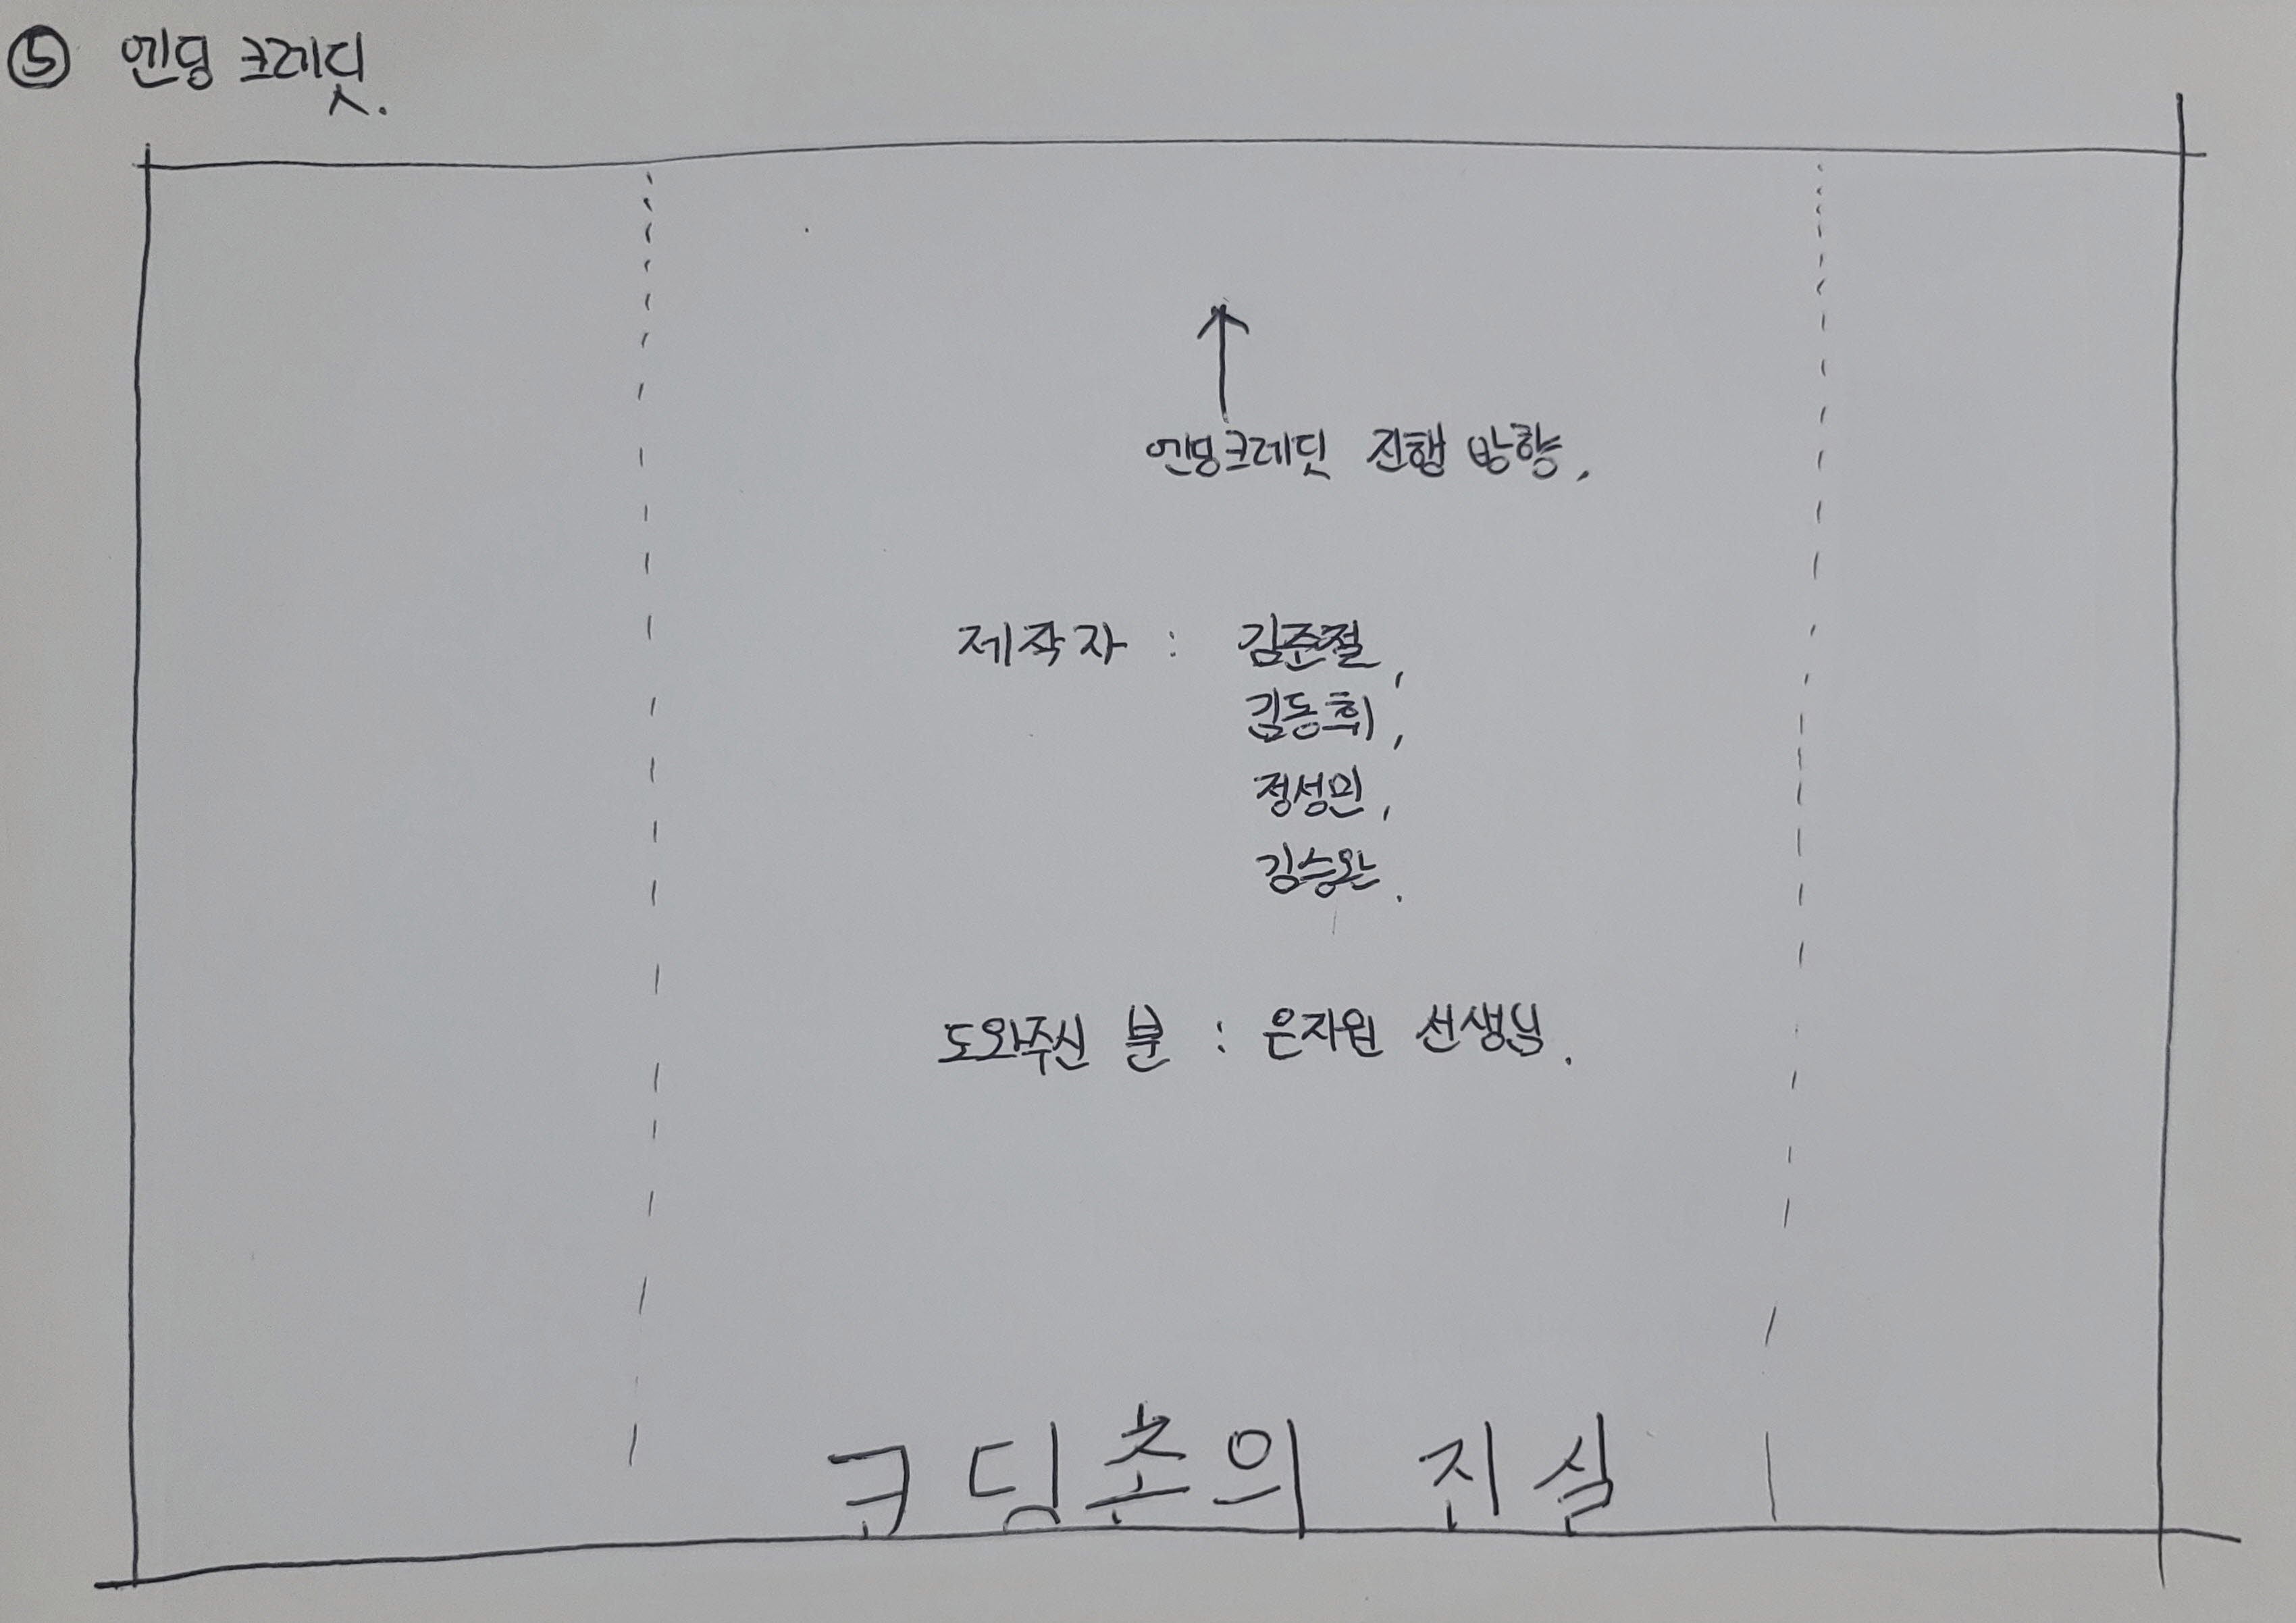 ⑤ 엔딩 크레딧.
엔딩크레딧 진행 방향.
제작자 : 김준절,
김동휘,
정성민,
김승완.
도와주신 분 : 은자원 선생님.
코딩촌의 진실